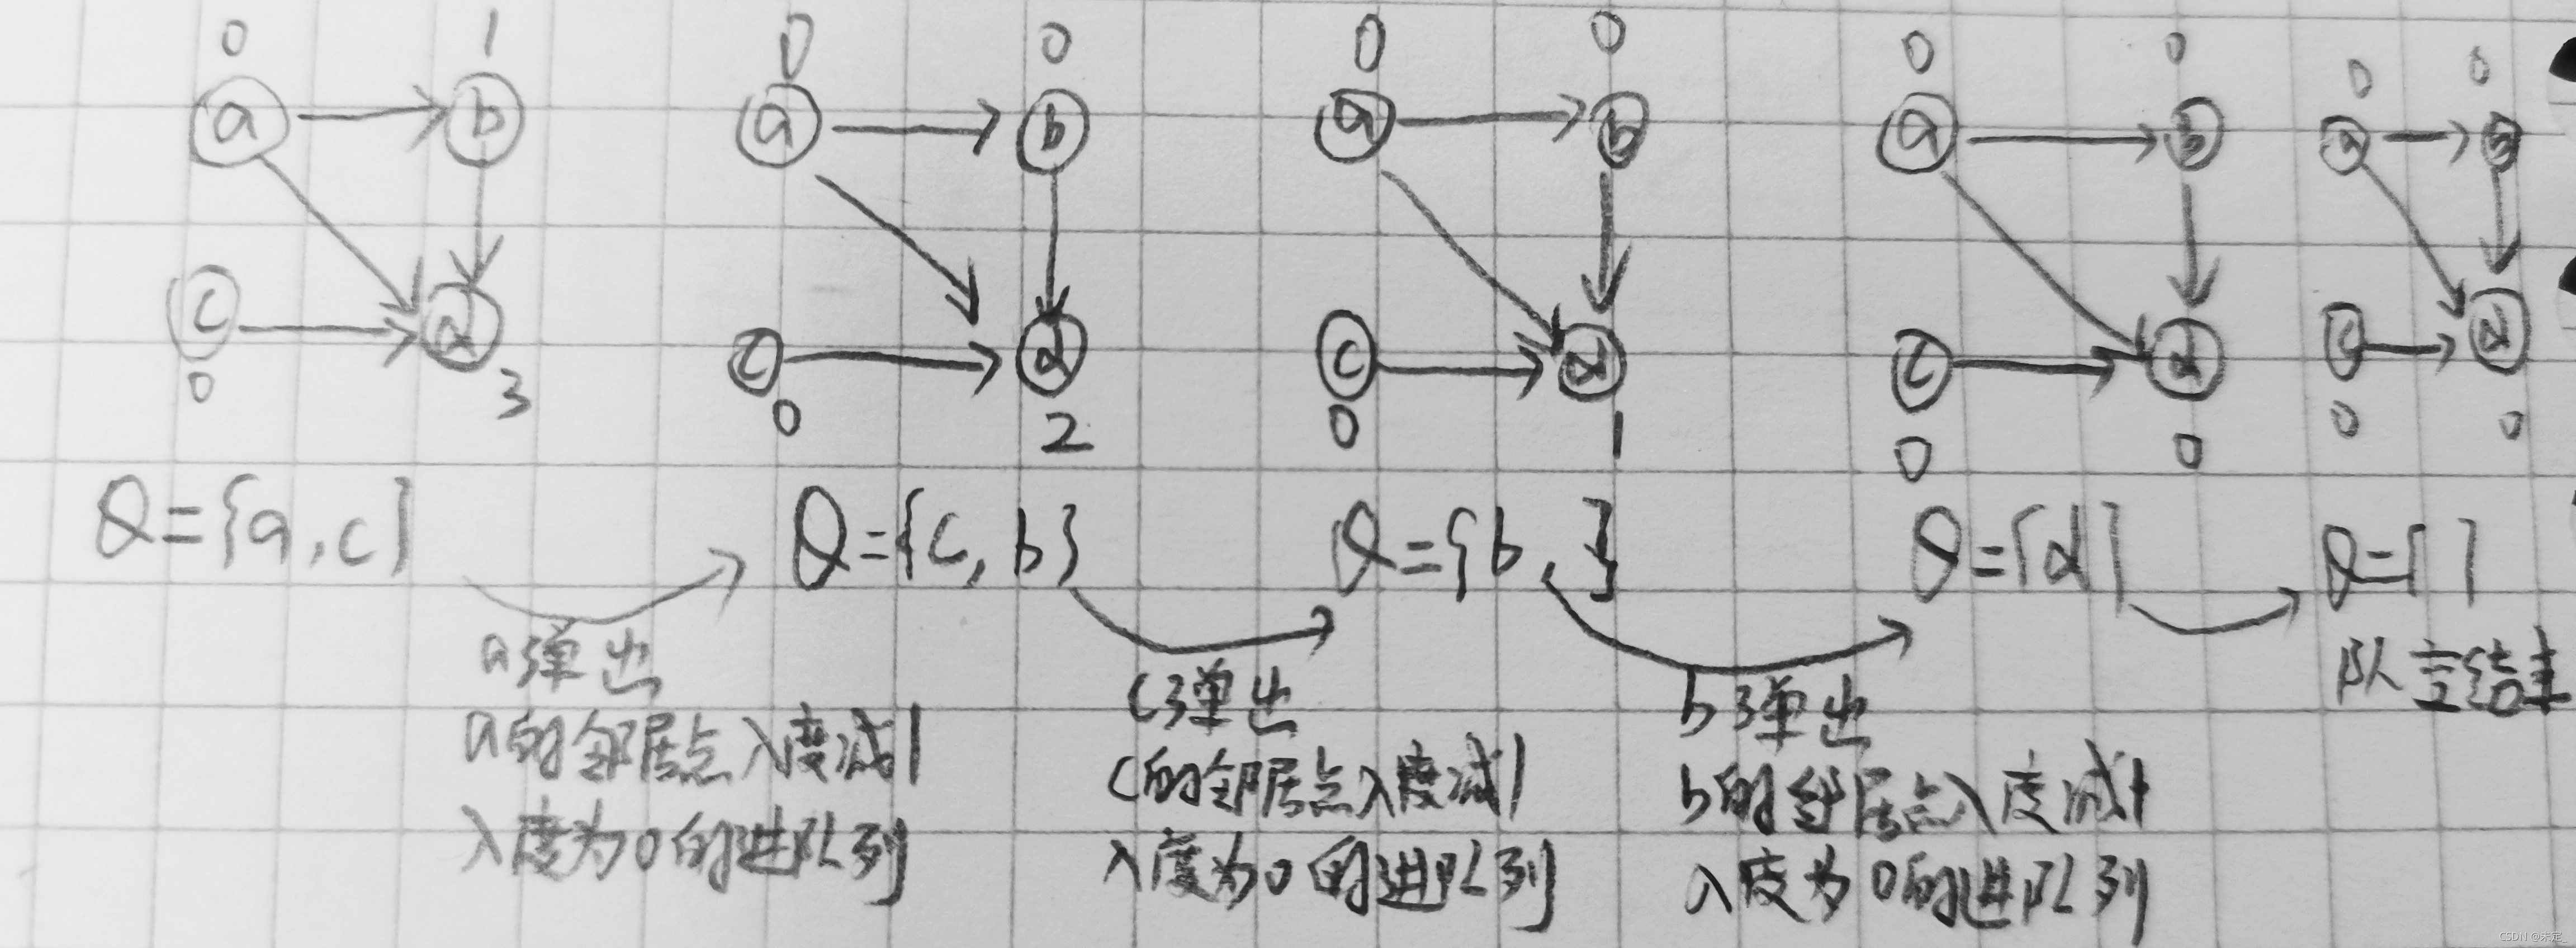 0 1 0 0 0 0 0 0 0 0
a b a b a b a b a b
c d c d c d c d c d
0 3 0 2 0 1 0 0 0 0
Q={a,c}
Q={c,b}
Q={b,}
Q={d}
Q={ }
a弹出
a的邻居点入度减1
入度为0的进队列
c弹出
c的邻居点入度减1
入度为0的进队列
b弹出
b的邻居点入度减1
入度为0的进队列
队空结束
CSDN @未定